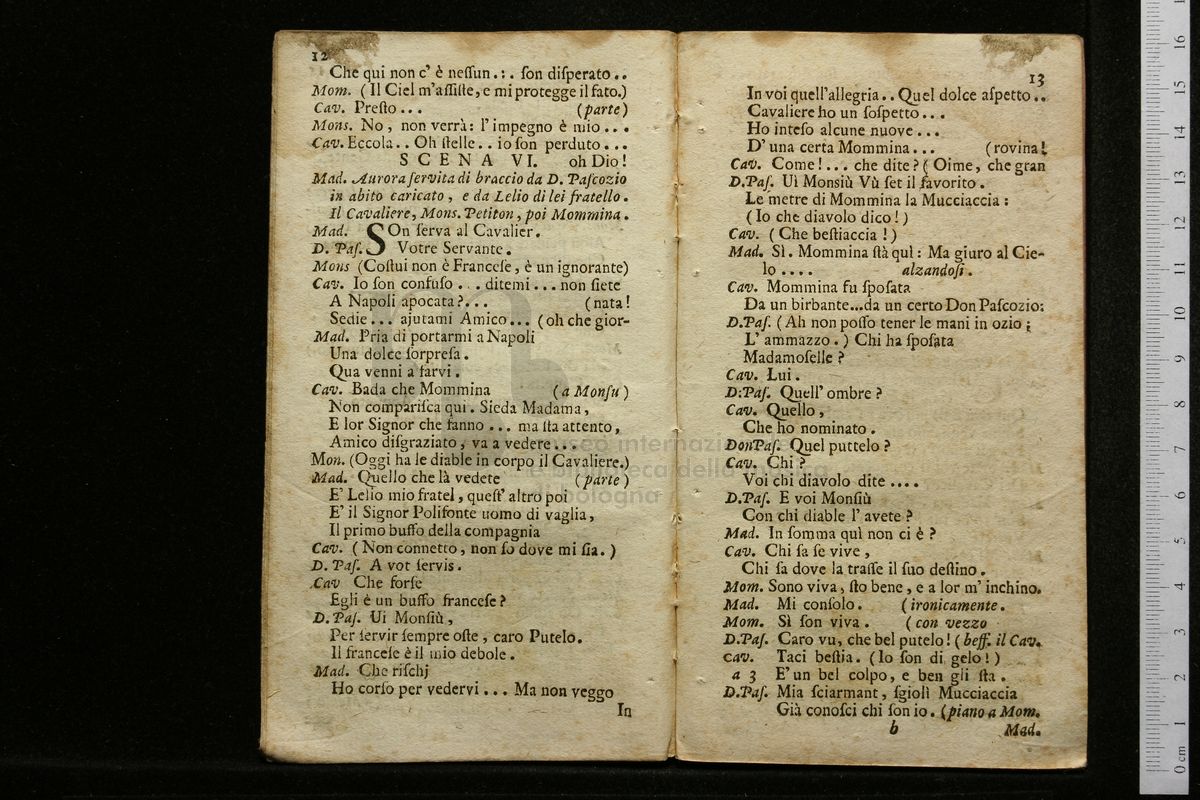 12
Che qui non c' è neſſun . : . ſon diſperato . .
Mom. ( Il Ciel m'aſſiſte, e mi protegge il fato.)
Cav. Preſto . . . (parte)
Mons. No , non verrà: l' impegno è mio . . .
Cav. Eccola . . Oh ſtelle . . io ſon perduto . . .
SCENA VI. oh Dio !
Mad. Aurora ſervita di braccio da D. Paſcozio
in abito caricato , e da Lelio di lei fratello .
Il Cavaliere, Mons. Petiton, poi Mommina .
Mad. SOn ſerva al Cavalier.
D. Paſ. Votre Servante .
Mons (Coſtui non è Franceſe , è un ignorante)
Cav. Io ſon confuſo . . . ditemi . . . non ſiete
A Napoli apocata ? . . . ( nata !
Sedie . . . ajutami Amico . . . (oh che gior-
Mad. Pria di portarmi a Napoli
Una dolce ſorpreſa .
Qua venni a farvi .
Cav. Bada che Mommina ( a Monſu )
Non compariſca quì . Sieda Madama ,
E lor Signor che fanno . . . ma ſta attento,
Amico diſgraziato , va a vedere . . .
Mon. (Oggi ha le diable in corpo il Cavaliere.)
Mad. Quello che là vedete (parte )
E' Lelio mio fratel , queſt' altro poi
E' il Signor Polifonte uomo di vaglia,
Il primo buffo della compagnia
Cav. ( Non connetto, non ſo dove mi ſia. )
D. Paſ. A vot ſervis .
Cav Che forſe
Egli è un buffo franceſe ?
D. Paſ. Ui Monſiù ,
Per ſervir ſempre oſte , caro Putelo.
Il franceſe è il mio debole .
Mad. Che riſchj
Ho corſo per vedervi . . . Ma non veggo
In
13
In voi quell'allegria . . Quel dolce aſpetto . .
Cavaliere ho un ſoſpetto . . .
Ho inteſo alcune nuove . . .
D' una certa Mommina . . . (rovina!
Cav. Come ! . . . che dite ? ( Oime, che gran
D.Paſ. Uì Monsiù Vù ſet il favorito .
Le metre di Mommina la Mucciaccia :
( Io che diavolo dico ! )
Cav. ( Che beſtiaccia ! )
Mad. Sì . Mommina ſtà quì : Ma giuro al Cie-
lo . . . . alzandoſi .
Cav. Mommina fu ſpoſata
Da un birbante...da un certo Don Paſcozio:
D.Paſ. ( Ah non poſſo tener le mani in ozio ;
L' ammazzo . ) Chi ha ſpoſata
Madamoſelle ?
Cav. Lui .
D:Paſ. Quell' ombre ?
Cav. Quello ,
Che ho nominato .
DonPaſ. Quel puttelo ?
Cav. Chi ?
Voi chi diavolo dite . . . .
D.Paſ. E voi Monſiù
Con chi diable l' avete ?
Mad. In ſomma quì non ci è ?
Cav. Chi ſa ſe vive ,
Chi ſa dove la traſſe il ſuo deſtino .
Mom. Sono viva , ſto bene , e a lor m' inchino.
Mad. Mi conſolo . (ironicamente .
Mom. Sì ſon viva . ( con vezzo
D.Paſ. Caro vu, che bel putelo ! ( beff. il Cav.
cav. Taci beſtia . (Io ſon di gelo ! )
a 3 E' un bel colpo, e ben gli ſta .
D.Paſ. Mia ſciarmant , ſgiolì Mucciaccia
Già conoſci chi ſon io . (piano a Mom.
b Mad.
museo internazionale
e biblioteca della musica
bologna
0 cm 1 2 3 4 5 6 7 8 9 10 11 12 13 14 15 16